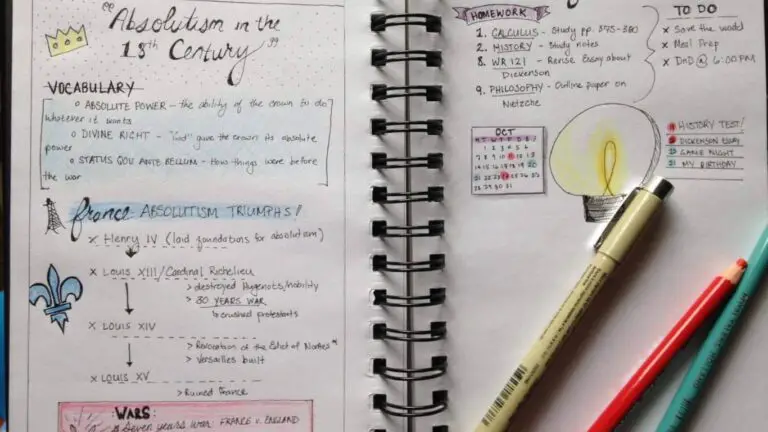 "Absolutism in the
13th Century"
VOCABULARY
o ABSOLUTE POWER - the ability of the crown to do
whatever it wants
o DIVINE RIGHT - "God" gave the crown its absolute
power
o STATUS QOU ANTE BELLUM - How things were before
the war
france: ABSOLUTISM TRIUMPHS!
x Henry IV (laid foundations for absolutism)
x Louis XIII/Cardinal Richelieu
> destroyed Hugenots/nobility
> 30 YEARS WAR
↳ crushed protestants
x LOUIS XIV
> Revocation of the Edict of Nantes
> Versailles built
x LOUIS XV
> Ruined France
WARS:
Seven years war: FRANCE v. ENGLAND
HOMEWORK
1. CALCULUS - Study pp. 375-380
2. HISTORY - Study notes
3. WR 121 - Revise Essay about
Dickenson
4. PHILOSOPHY - Outline paper on
Nietzche
TO DO
x Save the world
x Meal Prep
x DnD @ 6:00 PM
OCT
M T W T F S S
1 2 3 4 5 6
7 8 9 10 11 12 13
14 15 16 17 18 19 20
21 22 23 24 25 26 27
28 29 30 31
HISTORY TEST!
DICKENSON ESSAY
GAME NIGHT
31 MY BIRTHDAY